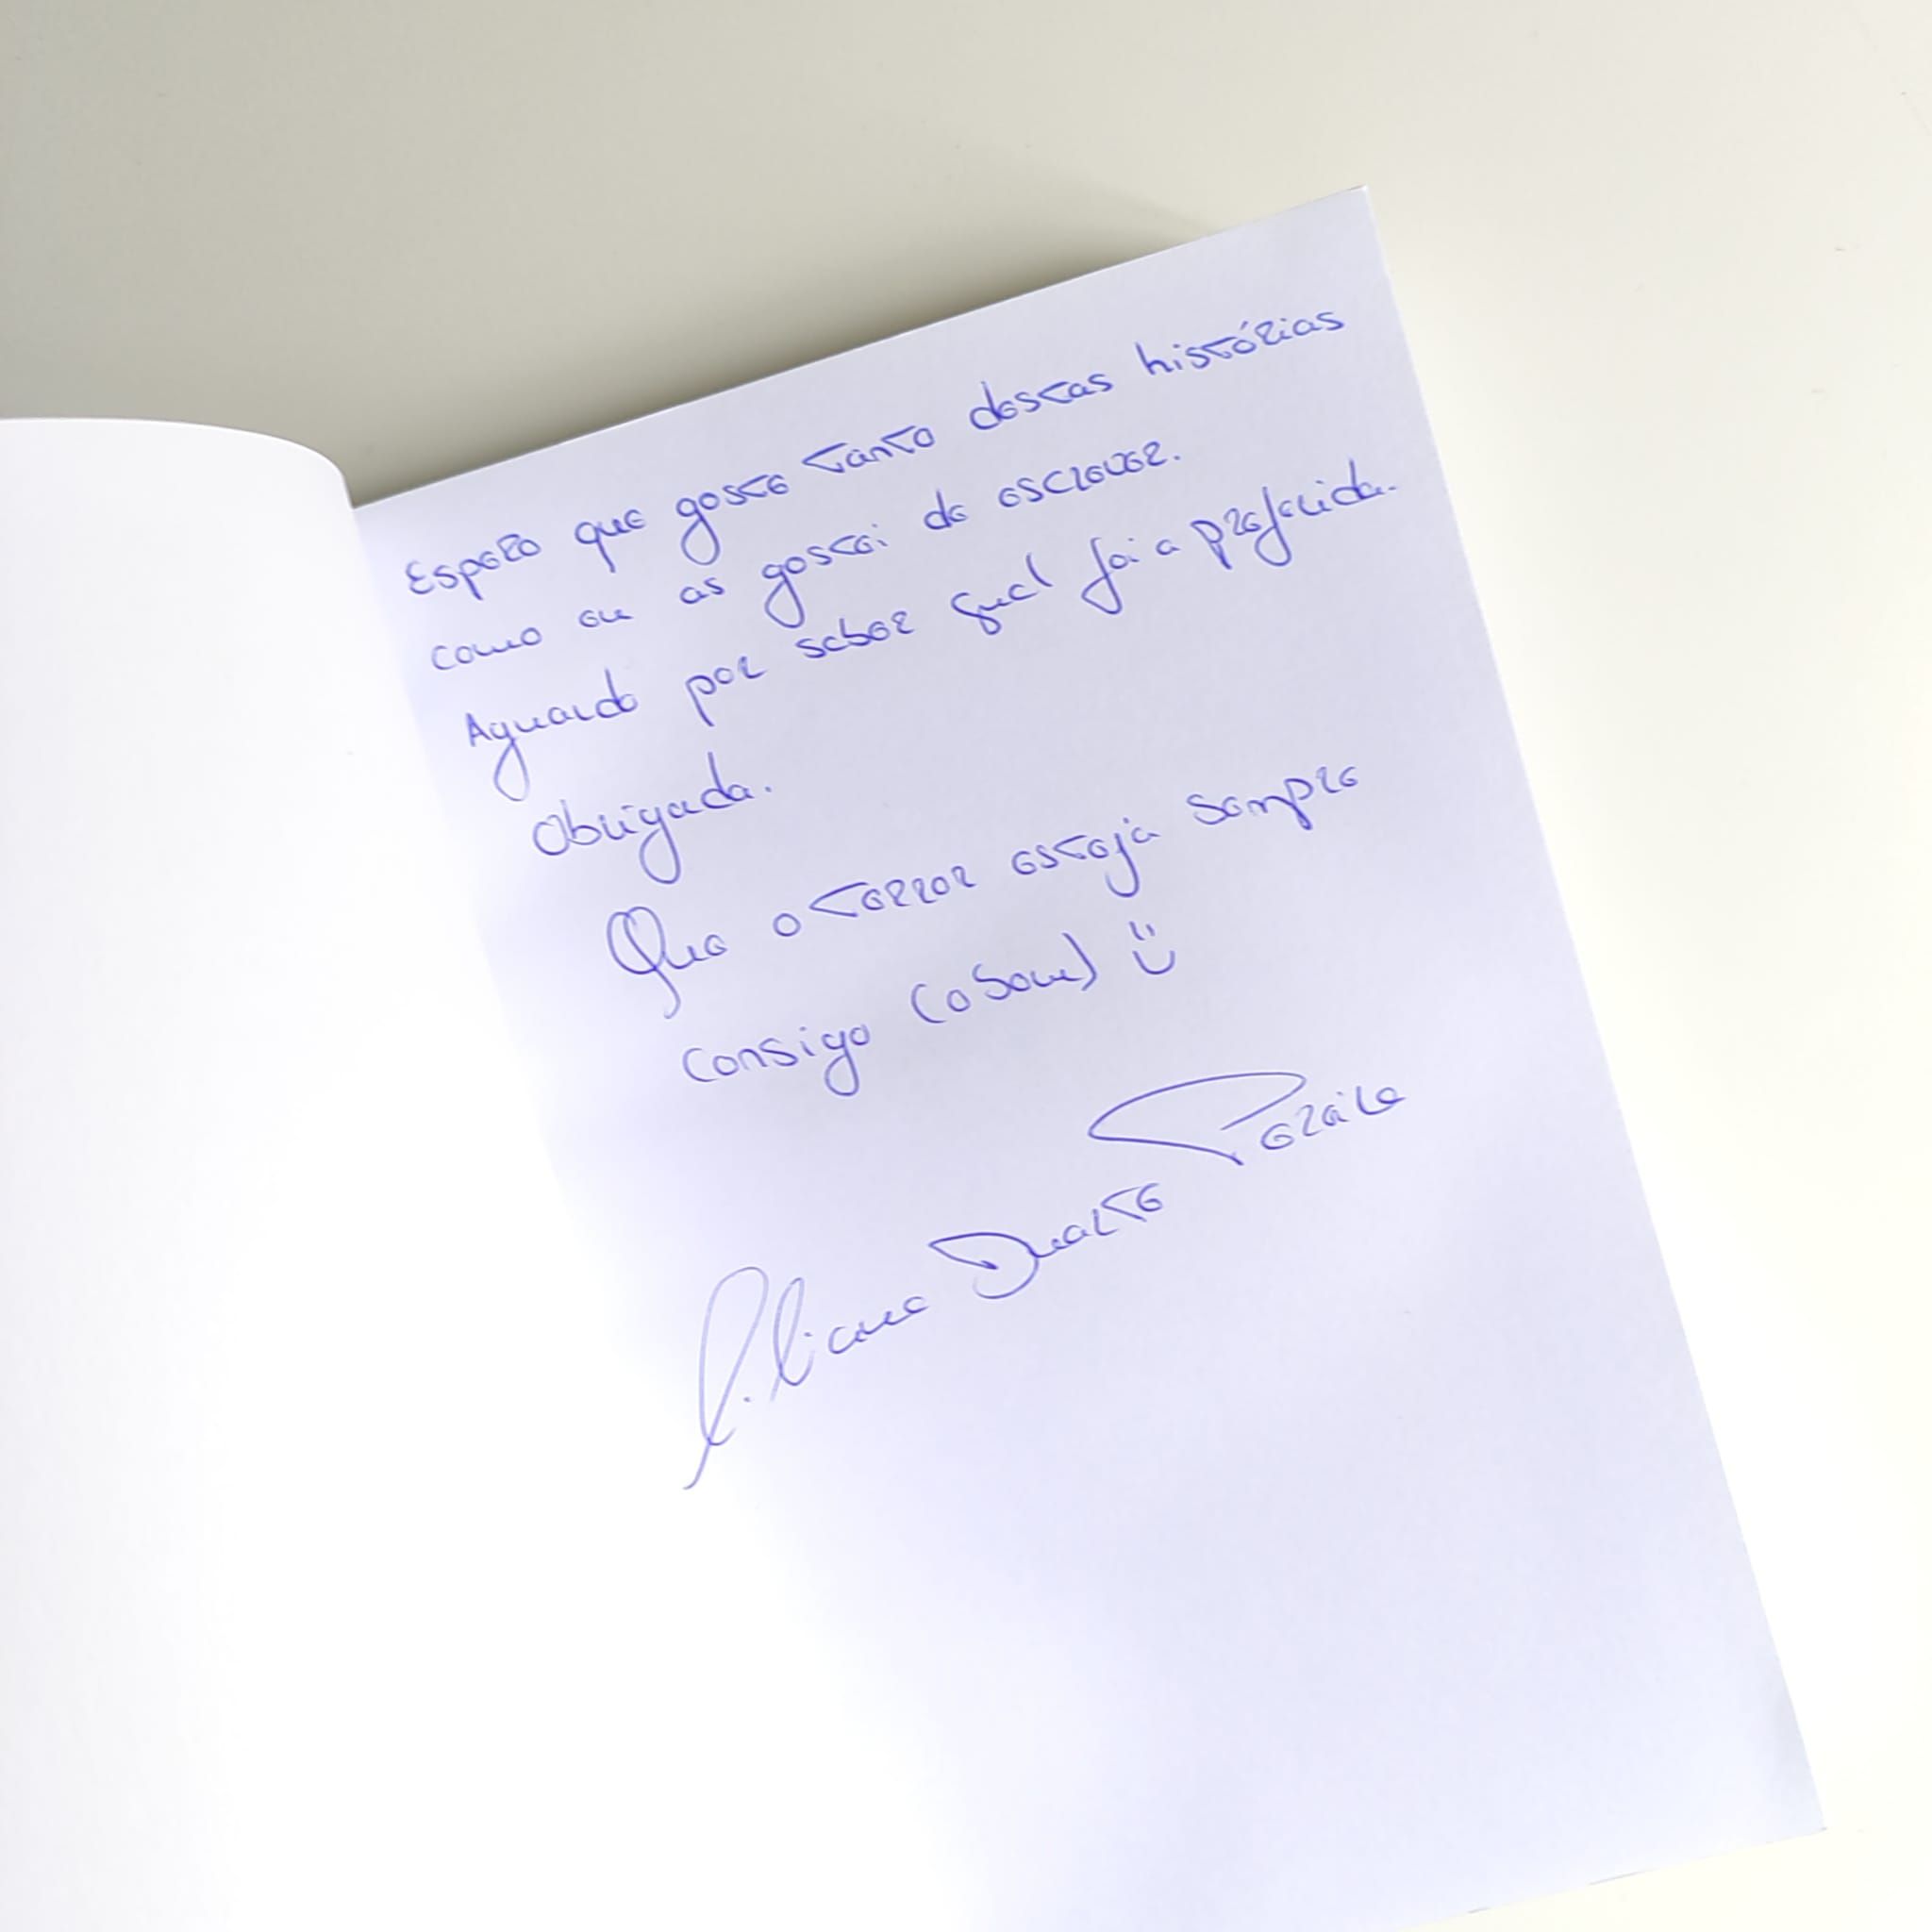 Espero que goste tanto destas histórias
como eu as gostei de escrever.
Aguardo por saber qual foi a preferida.
Obrigada.
Que o terror esteja sempre
consigo (o bom) :)
Liliana Duarte Pereira